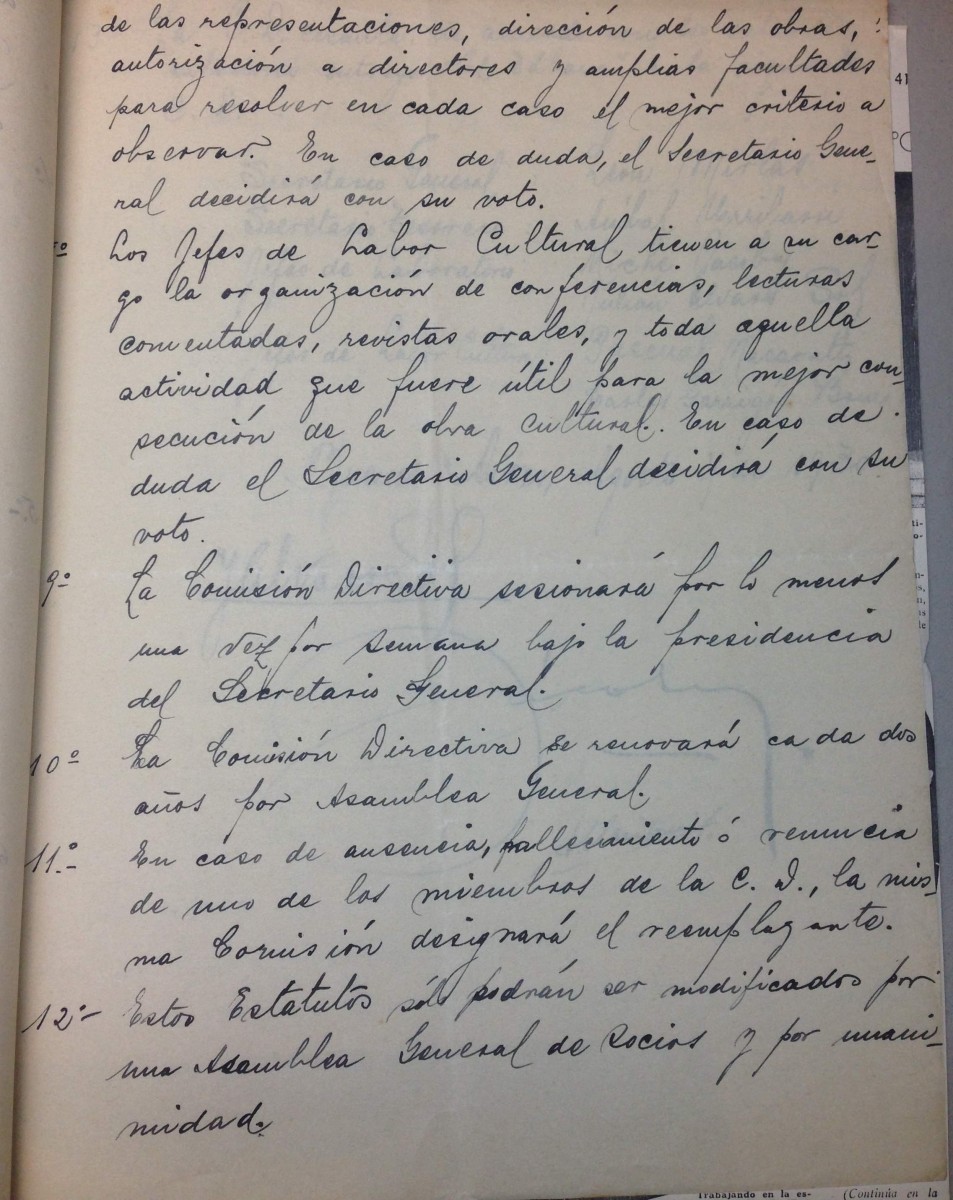 de las representaciones, dirección de las obras,
autorización a directores y amplias facultades
para resolver en cada caso el mejor criterio a
observar. En caso de duda, el Secretario Gene-
ral decidirá con su voto.
Los Jefes de Labor Cultural tienen a su car-
go la organización de conferencias, lecturas
comentadas, revistas orales, y toda aquella
actividad que fuere útil para la mejor con-
secución de la obra cultural. En caso de
duda el Secretario General decidirá con su
voto.
9º La Comisión Directiva sesionará por lo menos
una vez por semana bajo la presidencia
del Secretario General.
10º La Comisión Directiva se renovará cada dos
años por Asamblea General.
11º.- En caso de ausencia, fallecimiento ó renuncia
de uno de los miembros de la C. D., la mis-
ma Comisión designará el reemplazante.
12º- Estos Estatutos sólo podrán ser modificados por
una Asamblea General de Socios y por unani-
midad.
41
Trabajando en la es-
(Continúa en la